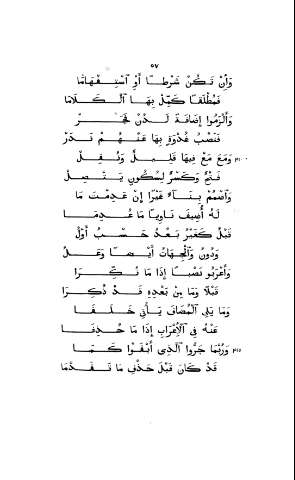 ٥٧
وَإِنْ تَكُنْ شَرْطًا أَوِ ٱسْتِفْهَامَا
فَمُطْلَقًا كَمِّلْ بِهَا ٱلْكَلَامَا
وَأَلْزَمُوا إِضَافَةً لَدُنْ فَجَرّْ
فَنَصْبُ غُدْوَةٍ بِهَا عَنْهُمْ نَدَرْ
٣١٠ وَمَعَ مَعْ فِيهَا قَلِيلٌ وَنُقِلْ
فَتْحٌ وَكَسْرٌ لِسُكُونٍ يَتَّصِلْ
وَٱضْمُمْ بِنَآءً غَيْرًا إِنْ عَدِمْتَ مَا
لَهُ أُضِيفَ نَاوِيًا مَا عُدِمَا
قَبْلُ كَغَيْرُ بَعْدُ حَسْبُ أَوَّلُ
وَدُونُ وَٱلْجِهَاتُ أَيْضًا وَعَلُ
وَأَعْرَبُو نَصْبًا إِذَا مَا نُكِّرَا
قَبْلًا وَمَا مِنْ بَعْدِهِ قَدْ ذُكِرَا
وَمَا يَلِي ٱلْمُضَافَ يَأْتِي خَلَفَا
عَنْهُ فِي ٱلْإِعْرَابِ إِذَا مَا حُذِفَا
٣١٥ وَرُبَّمَا جَرُّوا ٱلَّذِي أَبْقَوْا كَمَا
قَدْ كَانَ قَبْلَ حَذْفِ مَا تَقَدَّمَا